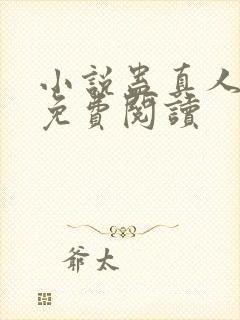 小說蠱真人
免費閱讀
爺太